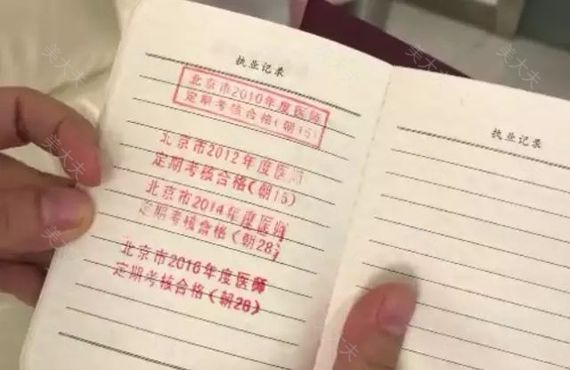 执业记录
北京市2010年度医师
定期考核合格(朝15)
北京市2012年度医师
定期考核合格(朝15)
北京市2014年度医师
定期考核合格(朝28)
北京市2016年度医師
定期考核合格(朝28)
执业记录
美大夫
美大夫
美大夫
美大夫
美大夫
美大夫
美大夫
美大夫